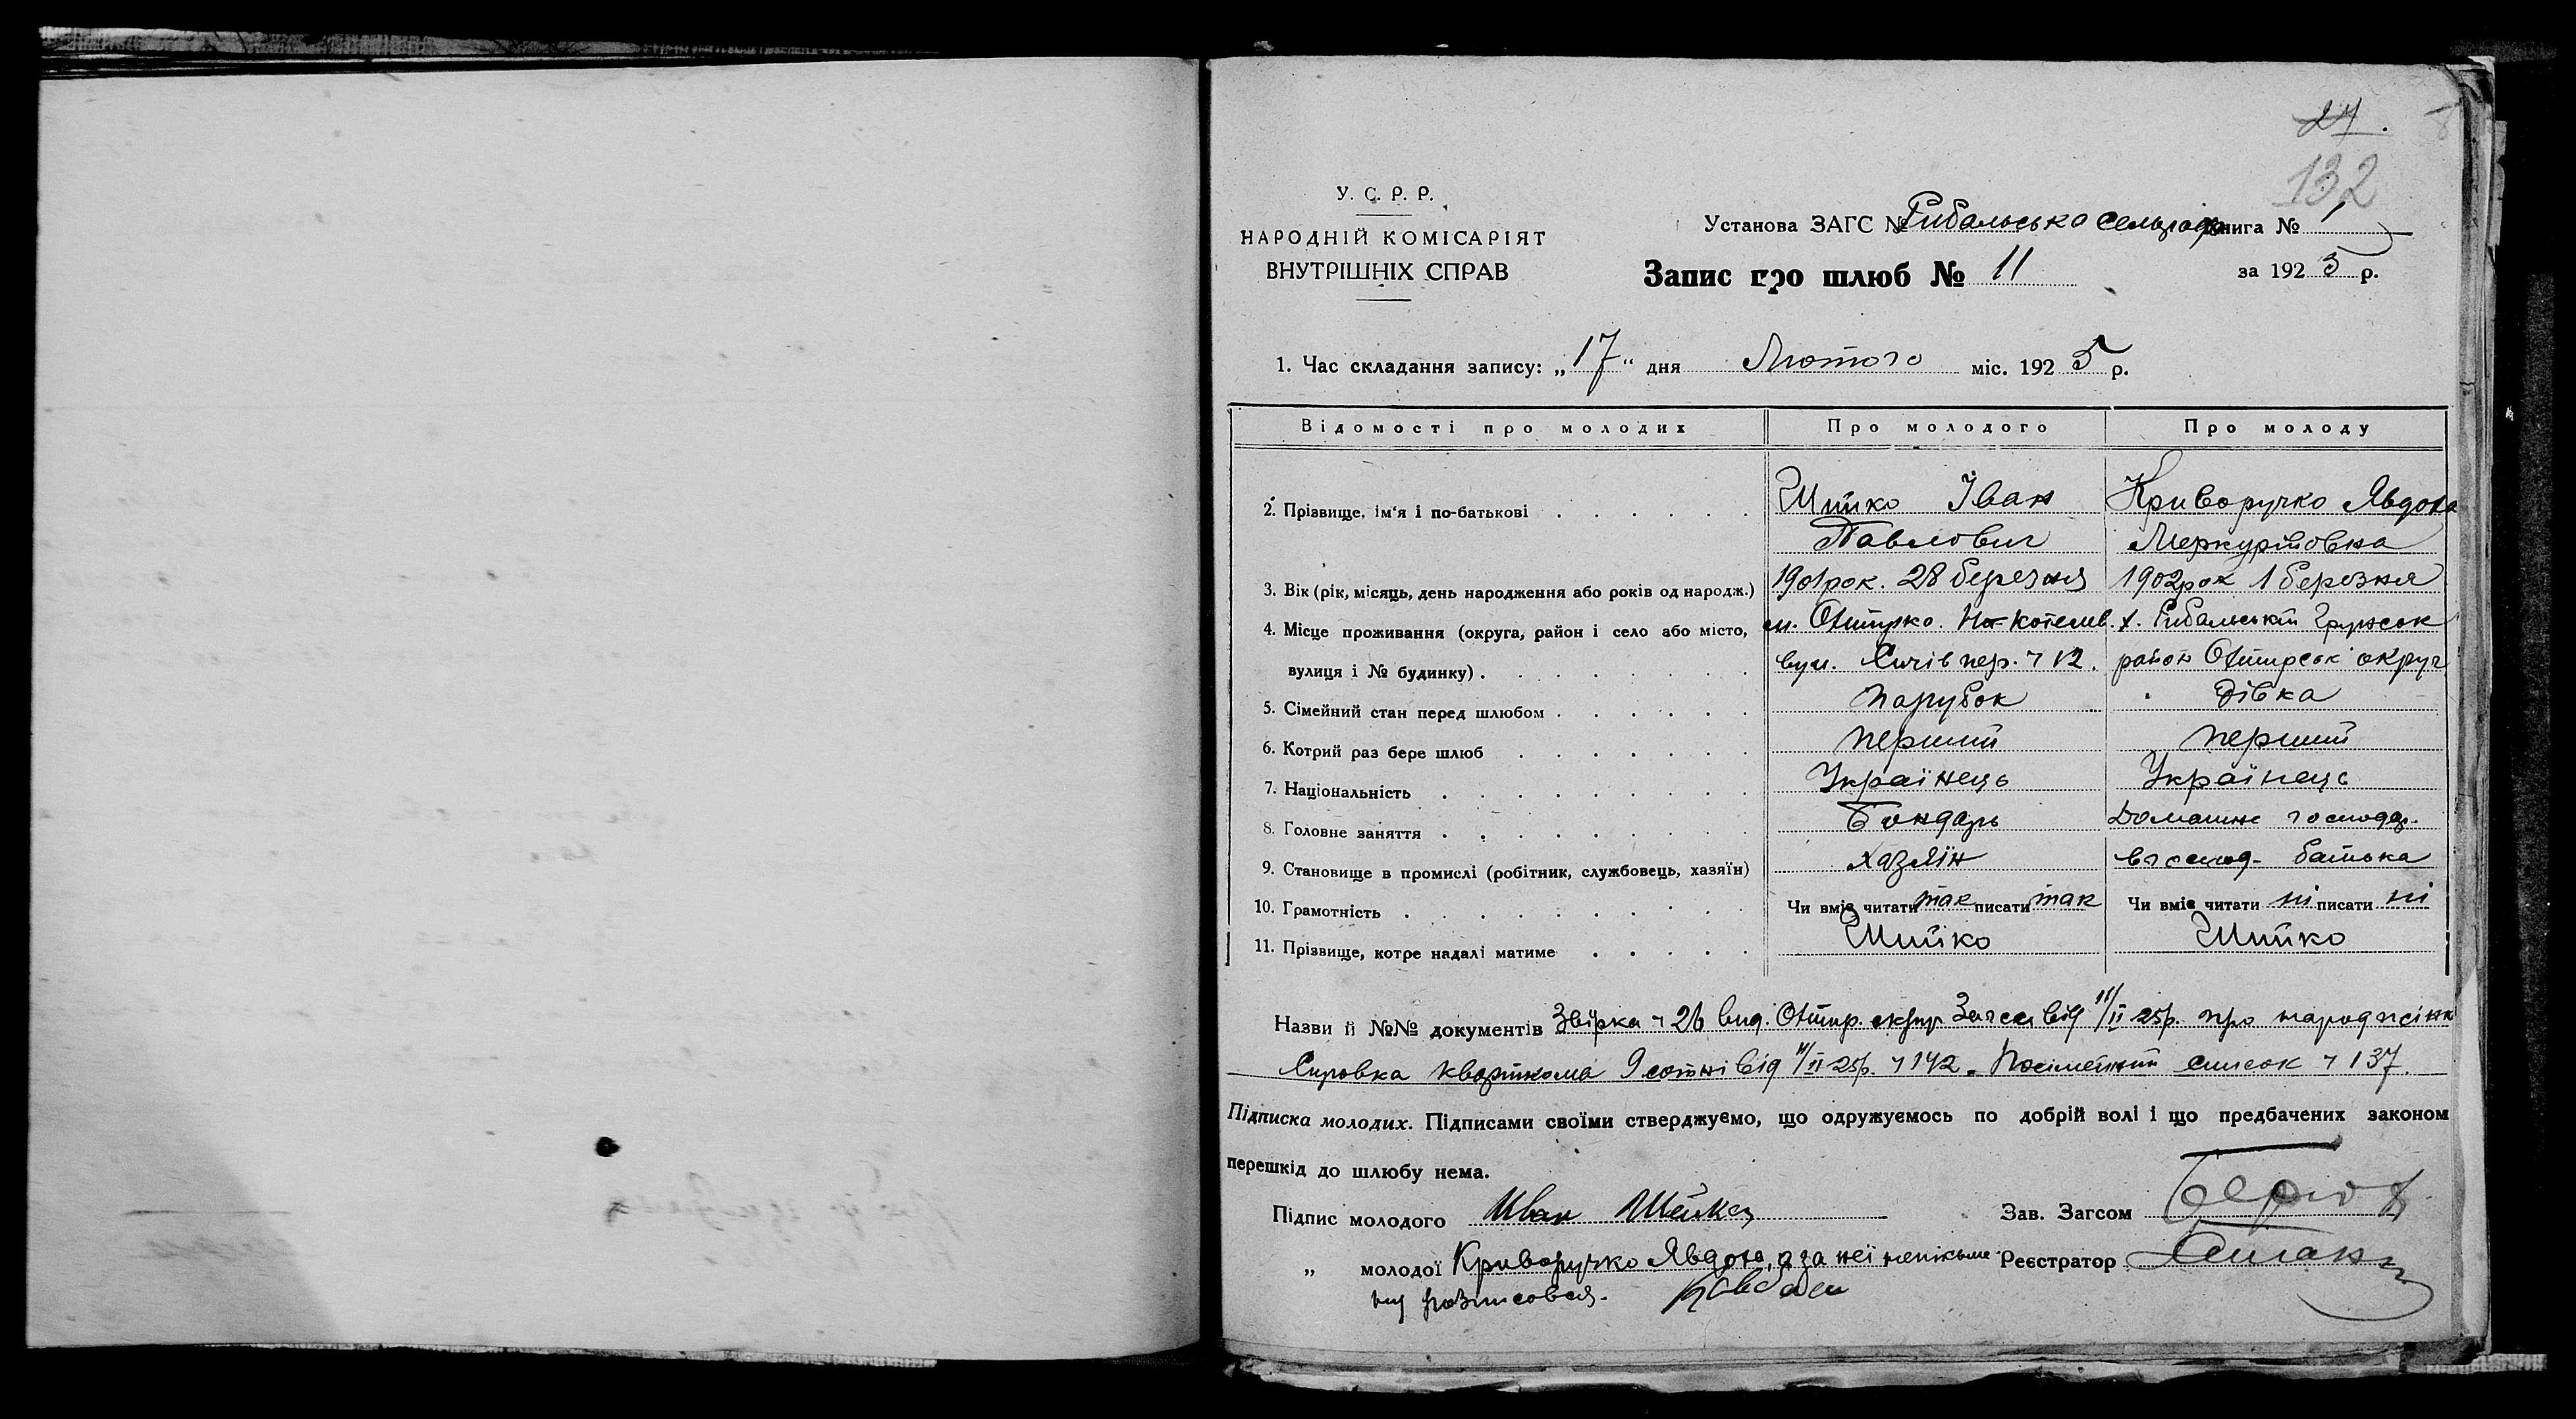 24.
132
У. С. Р. Р.
НАРОДНІЙ КОМІСАРІЯТ
ВНУТРІШНІХ СПРАВ
Установа ЗАГС № Рибальська сельрада книга № 1
Запис про шлюб № 11
за 1925 р.
1. Час складання запису: „17“ дня Лютого міс. 1925 р.
Відомості про молодих Про молодого Про молоду
2. Прізвище, ім'я і по-батькові Шийко Іван Криворучко Явдоха
Павлович Меркуріївна
3. Вік (рік, місяць, день народження або років од народж.) 1901 рок. 28 березня 1902 рок 1 березня
4. Місце проживання (округа, район і село або місто, м. Охтирка. Котелев. х. Рибальський Грунськ
вулиця і № будинку) вул. пер. ч 12. район Охтирськ округ
5. Сімейний стан перед шлюбом парубок дівка
6. Котрий раз бере шлюб перший перший
7. Національність Українець Українець
8. Головне заняття Бондарь Домашнє господар.
9. Становище в промислі (робітник, службовець, хазяїн) хазяїн в господ- батька
10. Грамотність Чи вміє читати так писати так Чи вміє читати ні писати ні
11. Прізвище, котре надалі матиме Шийко Шийко
Назви й №№ документів ч 26 вид. Охтир. округ Загса від 11/II 25р. про народжіння
Справка кварткома 9 сотні від 11/II-25р. ч 142. Посімейний список ч 137.
Підписка молодих. Підписами своїми стверджуємо, що одружуємось по добрій волі і що предбачених законом
перешкід до шлюбу нема.
Підпис молодого Иван Шейко Зав. Загсом
„ молодої Криворучко Явдоха, а за неї неписьме Реєстратор
ну розписовся.